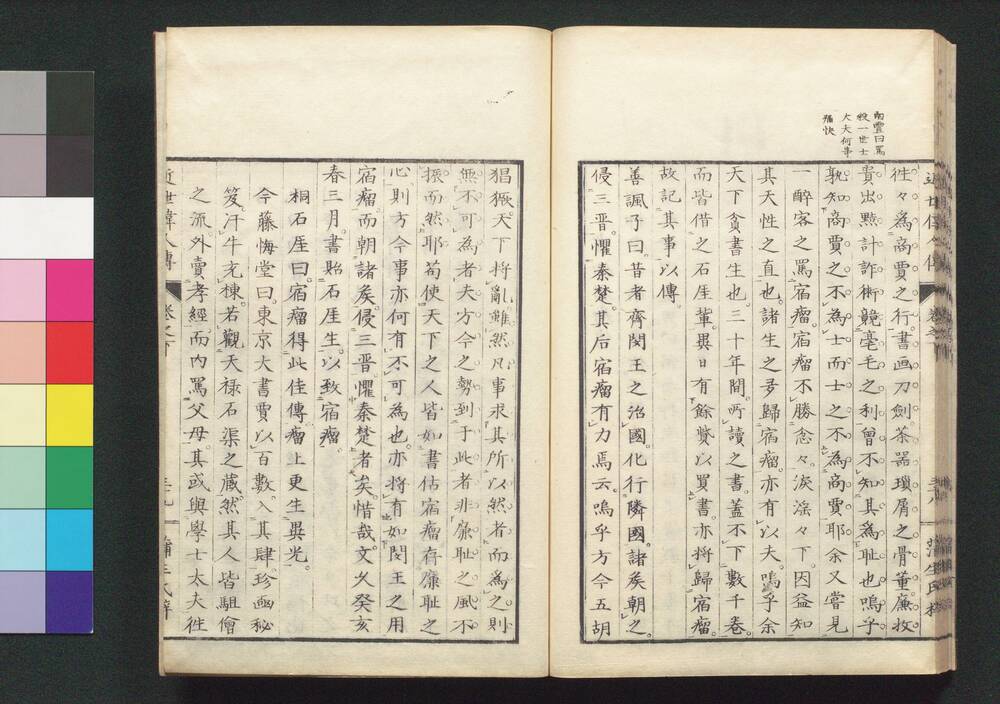 南豐曰罵
殺一世士
大夫何等
痛快
徃々為商賈之行書画刀劍茶器瑣屑之骨董廉扱
賣出黠計詐術競毫毛之利曽不知其為耻也嗚乎
孰知商賈之不為士而士之不為商賈耶余又嘗見
一醉客之罵宿瘤宿瘤不勝忿々淚滛々下因益知
其天性之直也諸生之多歸宿瘤亦有以夫嗚乎余
天下貧書生也三十年間所讀之書蓋不下數千卷
而皆借之石厓輩異日有餘贏以買書亦將歸宿瘤
故記其事以傳
善諷子曰昔者齊閔王之治國化行隣國諸矦朝之
侵三晋懼秦楚其后宿瘤有力焉云嗚乎方今五胡
猖獗天下将亂雖然凡事求其所以然者而為之則
無不可為者夫方今之勢到于此者非廉耻之風不
振而然耶苟使天下之人皆如書估宿瘤存廉耻之
心則方今事亦何有不可為也亦将有如閔王之用
宿瘤而朝諸矦侵三晋懼秦楚者矣惜哉文久癸亥
春三月書貽石厓生以致宿瘤
桐石厓曰宿瘤得此佳傳瘤上更生異光
今藤悔堂曰東京大書賈以百數入其肆珍凾秘
笈汗牛充棟若觀天禄石渠之藏然其人皆駔儈
之流外賣孝經而内罵父母其或與學士太夫徃
近世偉人傳
卷之下
三十九
蒲生氏梓